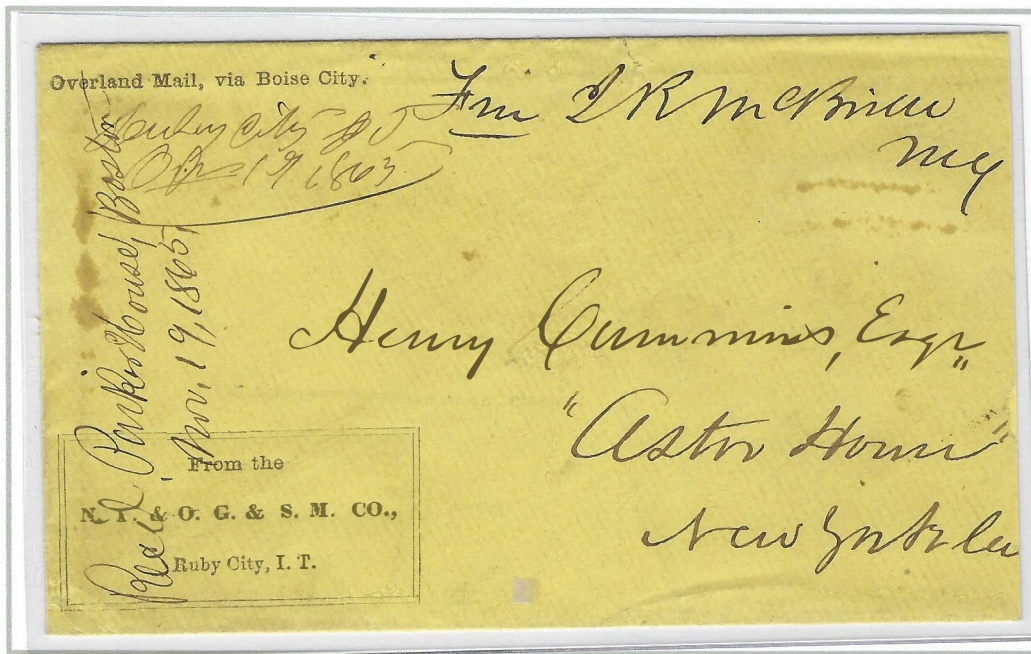 Overland Mail, via Boise City.
Ruby City I T
19 1865
Fm J R McBride
Henry Cummins, Esqr
"Astor House"
New York
Recd Parker House, Boston
Nov, 19, 1865,
From the
N. Y. & O. G. & S. M. CO.,
Ruby City, I. T.